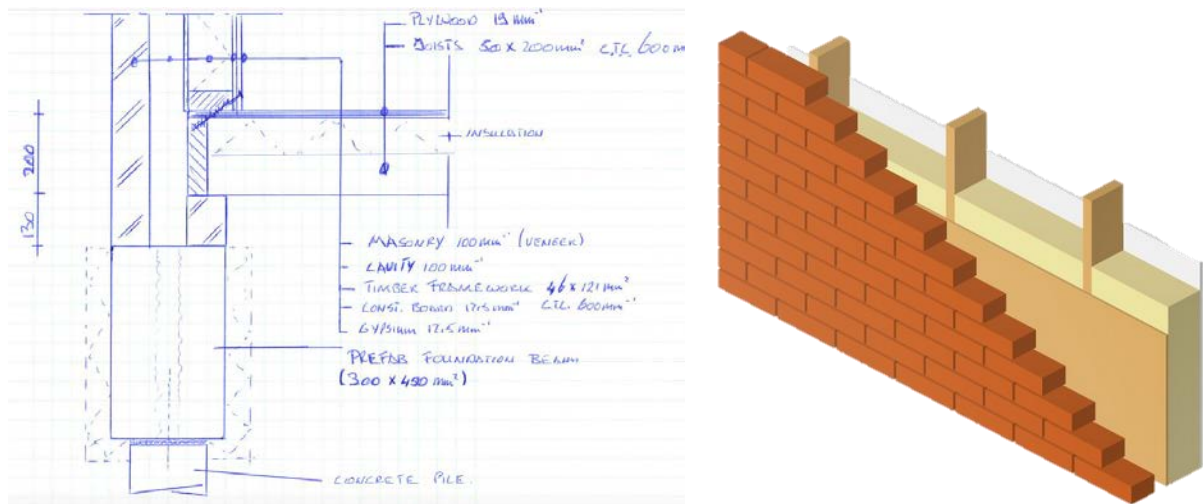 PLYWOOD 19 mm¹
JOISTS 50 x 200mm² C.T.C. 600 m
INSULATION
200
130
MASONRY 100mm¹ (VENEER)
CAVITY 100mm¹
TIMBER FRAMEWORK 46 x 121 mm²
CONST. BOARD 12.5mm¹ C.T.C. 600mm¹
GYPSIUM 12.5mm¹
PREFAB FOUNDATION BEAM
(300 x 450 mm²)
CONCRETE PILE.